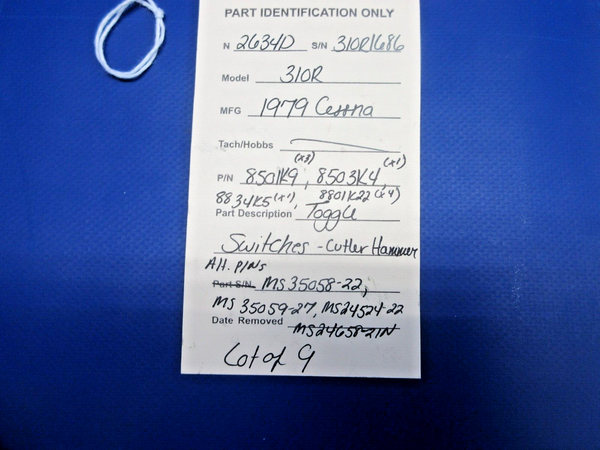 PART IDENTIFICATION ONLY
N 2634D S/N 310R1686
Model 310R
MFG 1979 Cessna
Tach/Hobbs
(x3) (x1)
P/N 8501K9, 8503K4,
8834K5 (x1), 8801K22 (x4)
Part Description Toggle
Switches - Cutler Hammer
Alt. P/Ns
Part S/N MS35058-22,
MS35059-27, MS24524-22
Date Removed MS24658-21N
Lot of 9